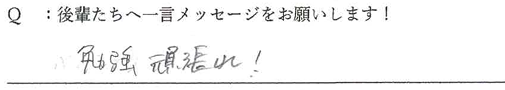 Q ：後輩たちへ一言メッセージをお願いします！
勉強 頑張れ！